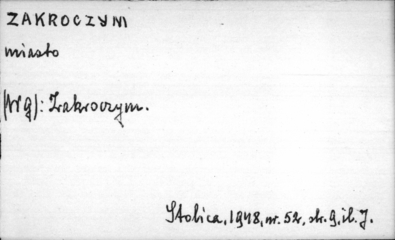 ZAKROCZYM
miasto
(Wg): Zakroczym.
Stolica, 1948, nr. 52, str. 9, il. J.